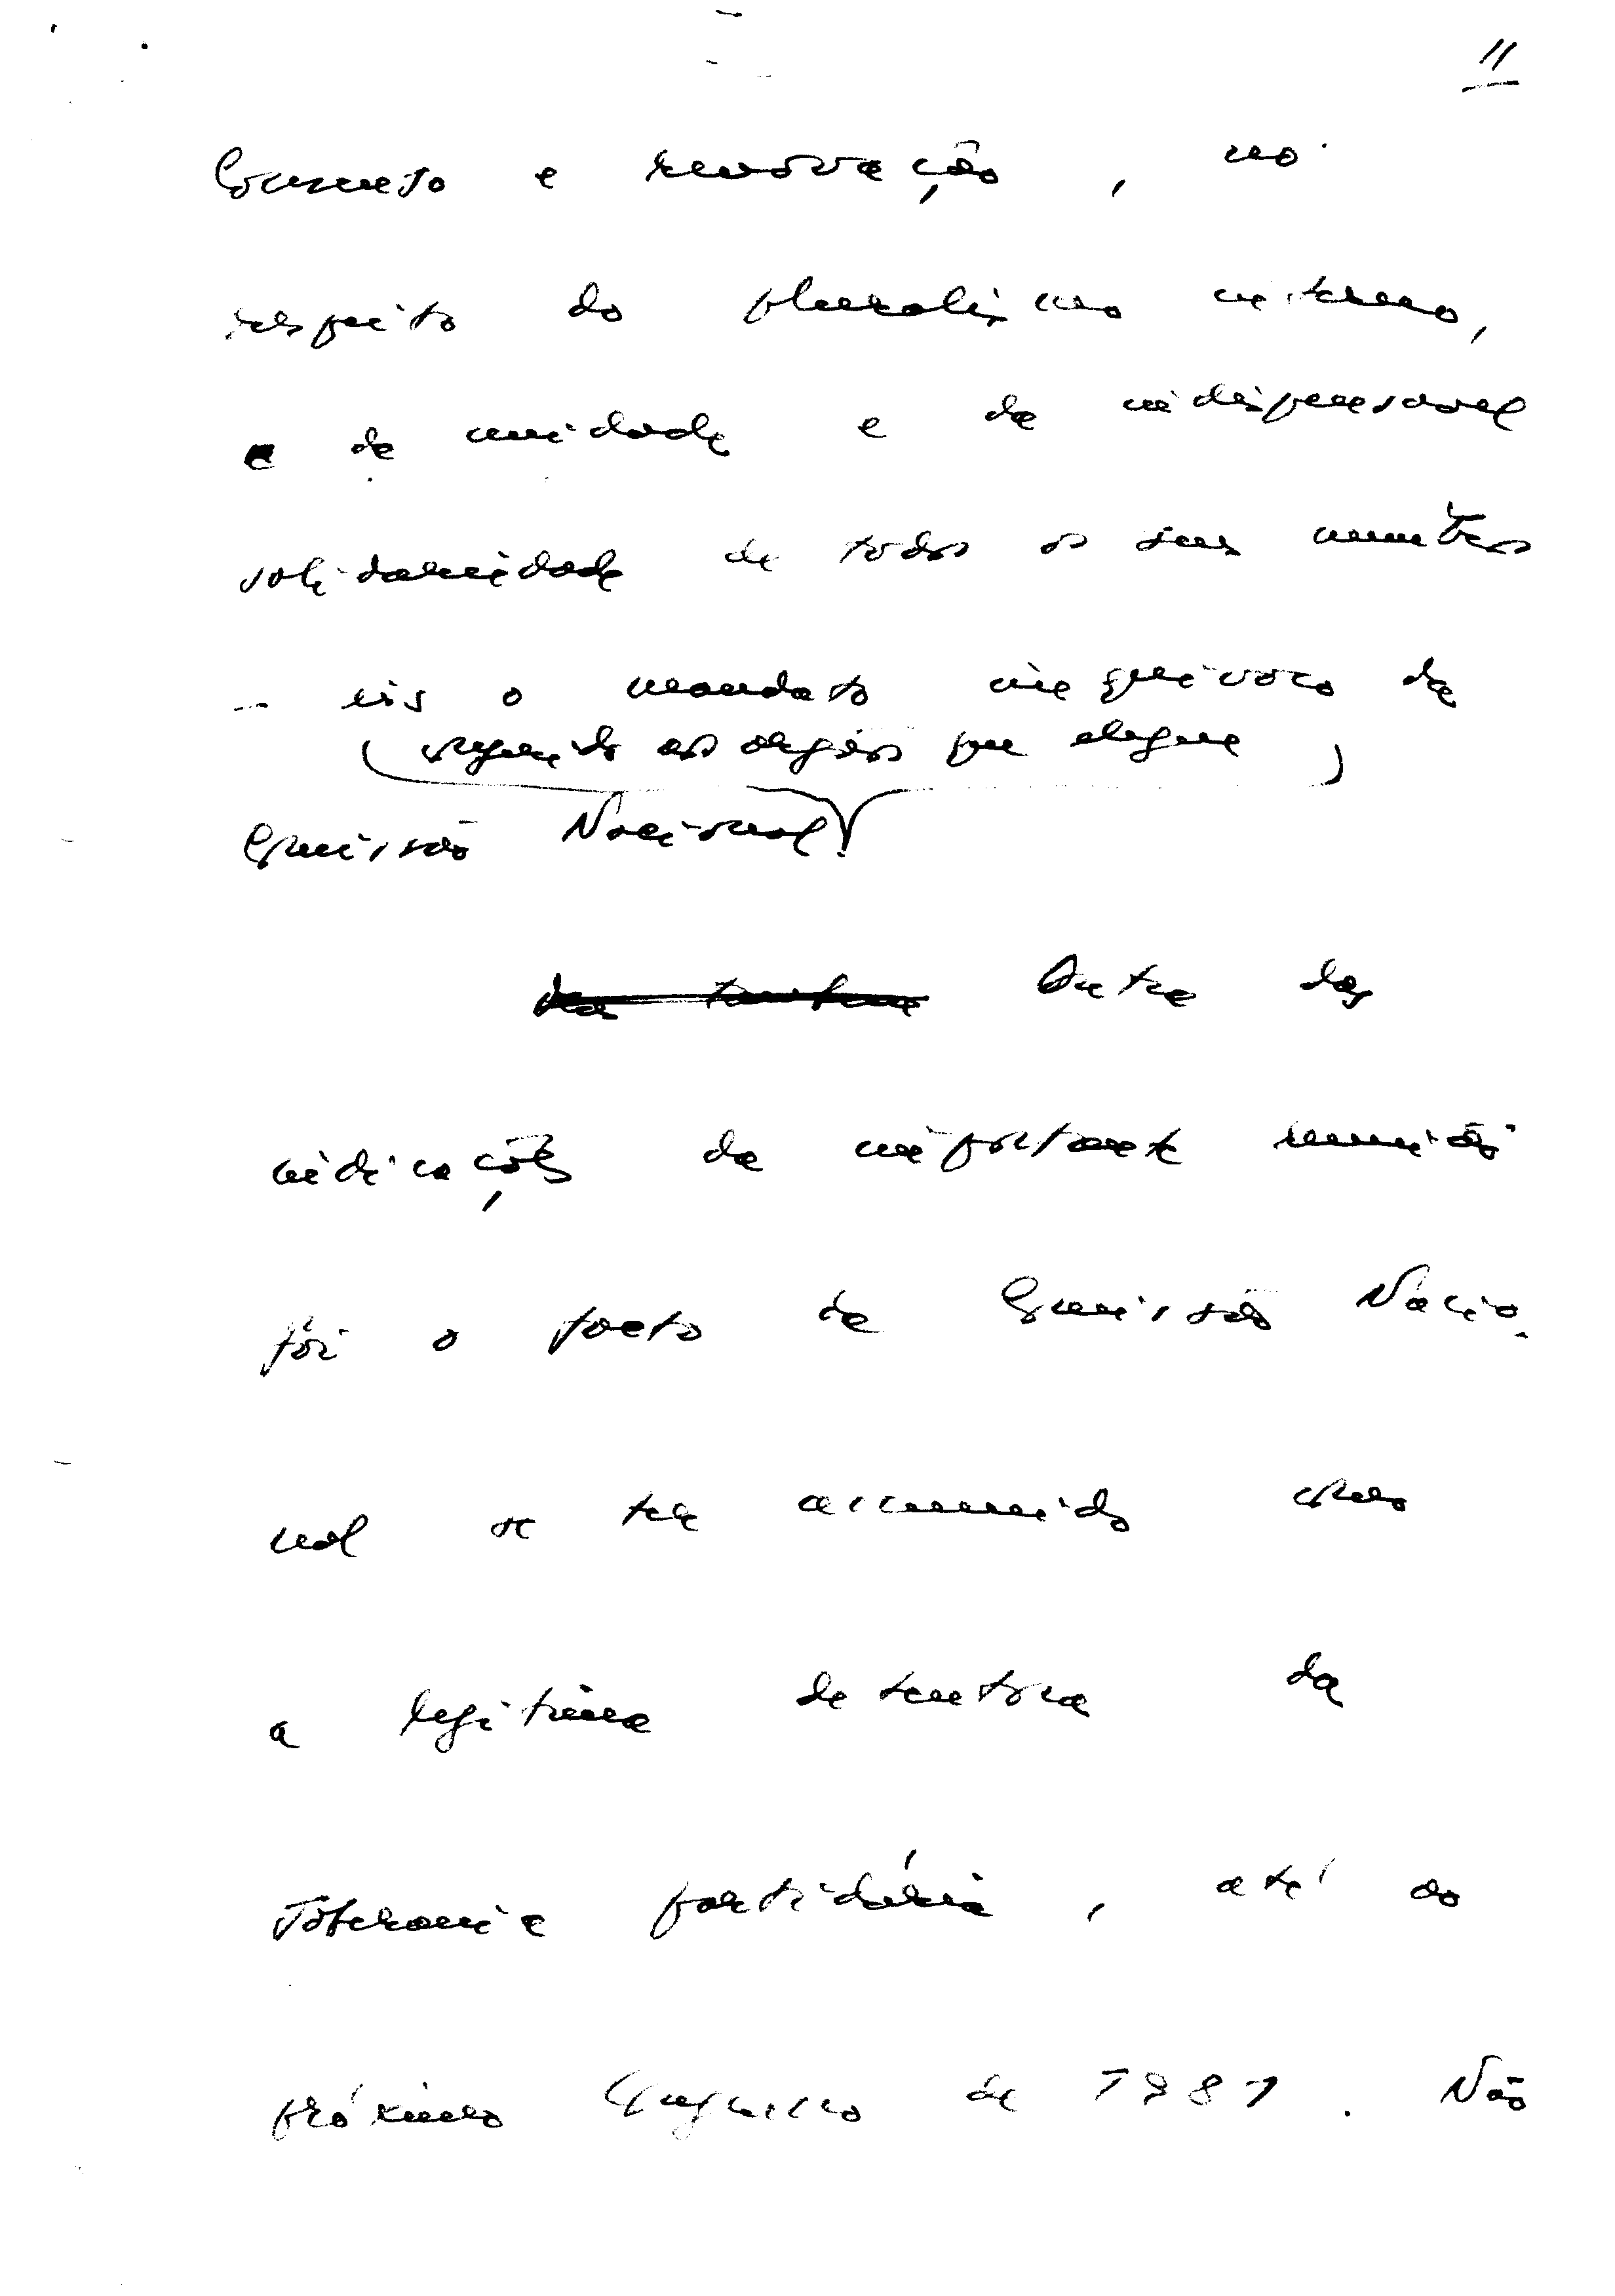 11
Consenso e renovação, no
respeito do pluralismo interno,
e da unidade e da indispensável
solidariedade de todos os seus membros
- eis o mandato inequívoco da
segundo os órgãos que elegeu
Comissão Nacional!
Outra das
indicações da importante reunião
foi o facto da Comissão Nacio-
nal se ter assumido como
a legítima detentora da
soberania partidária, até ao
próximo Congresso de 1981. Não